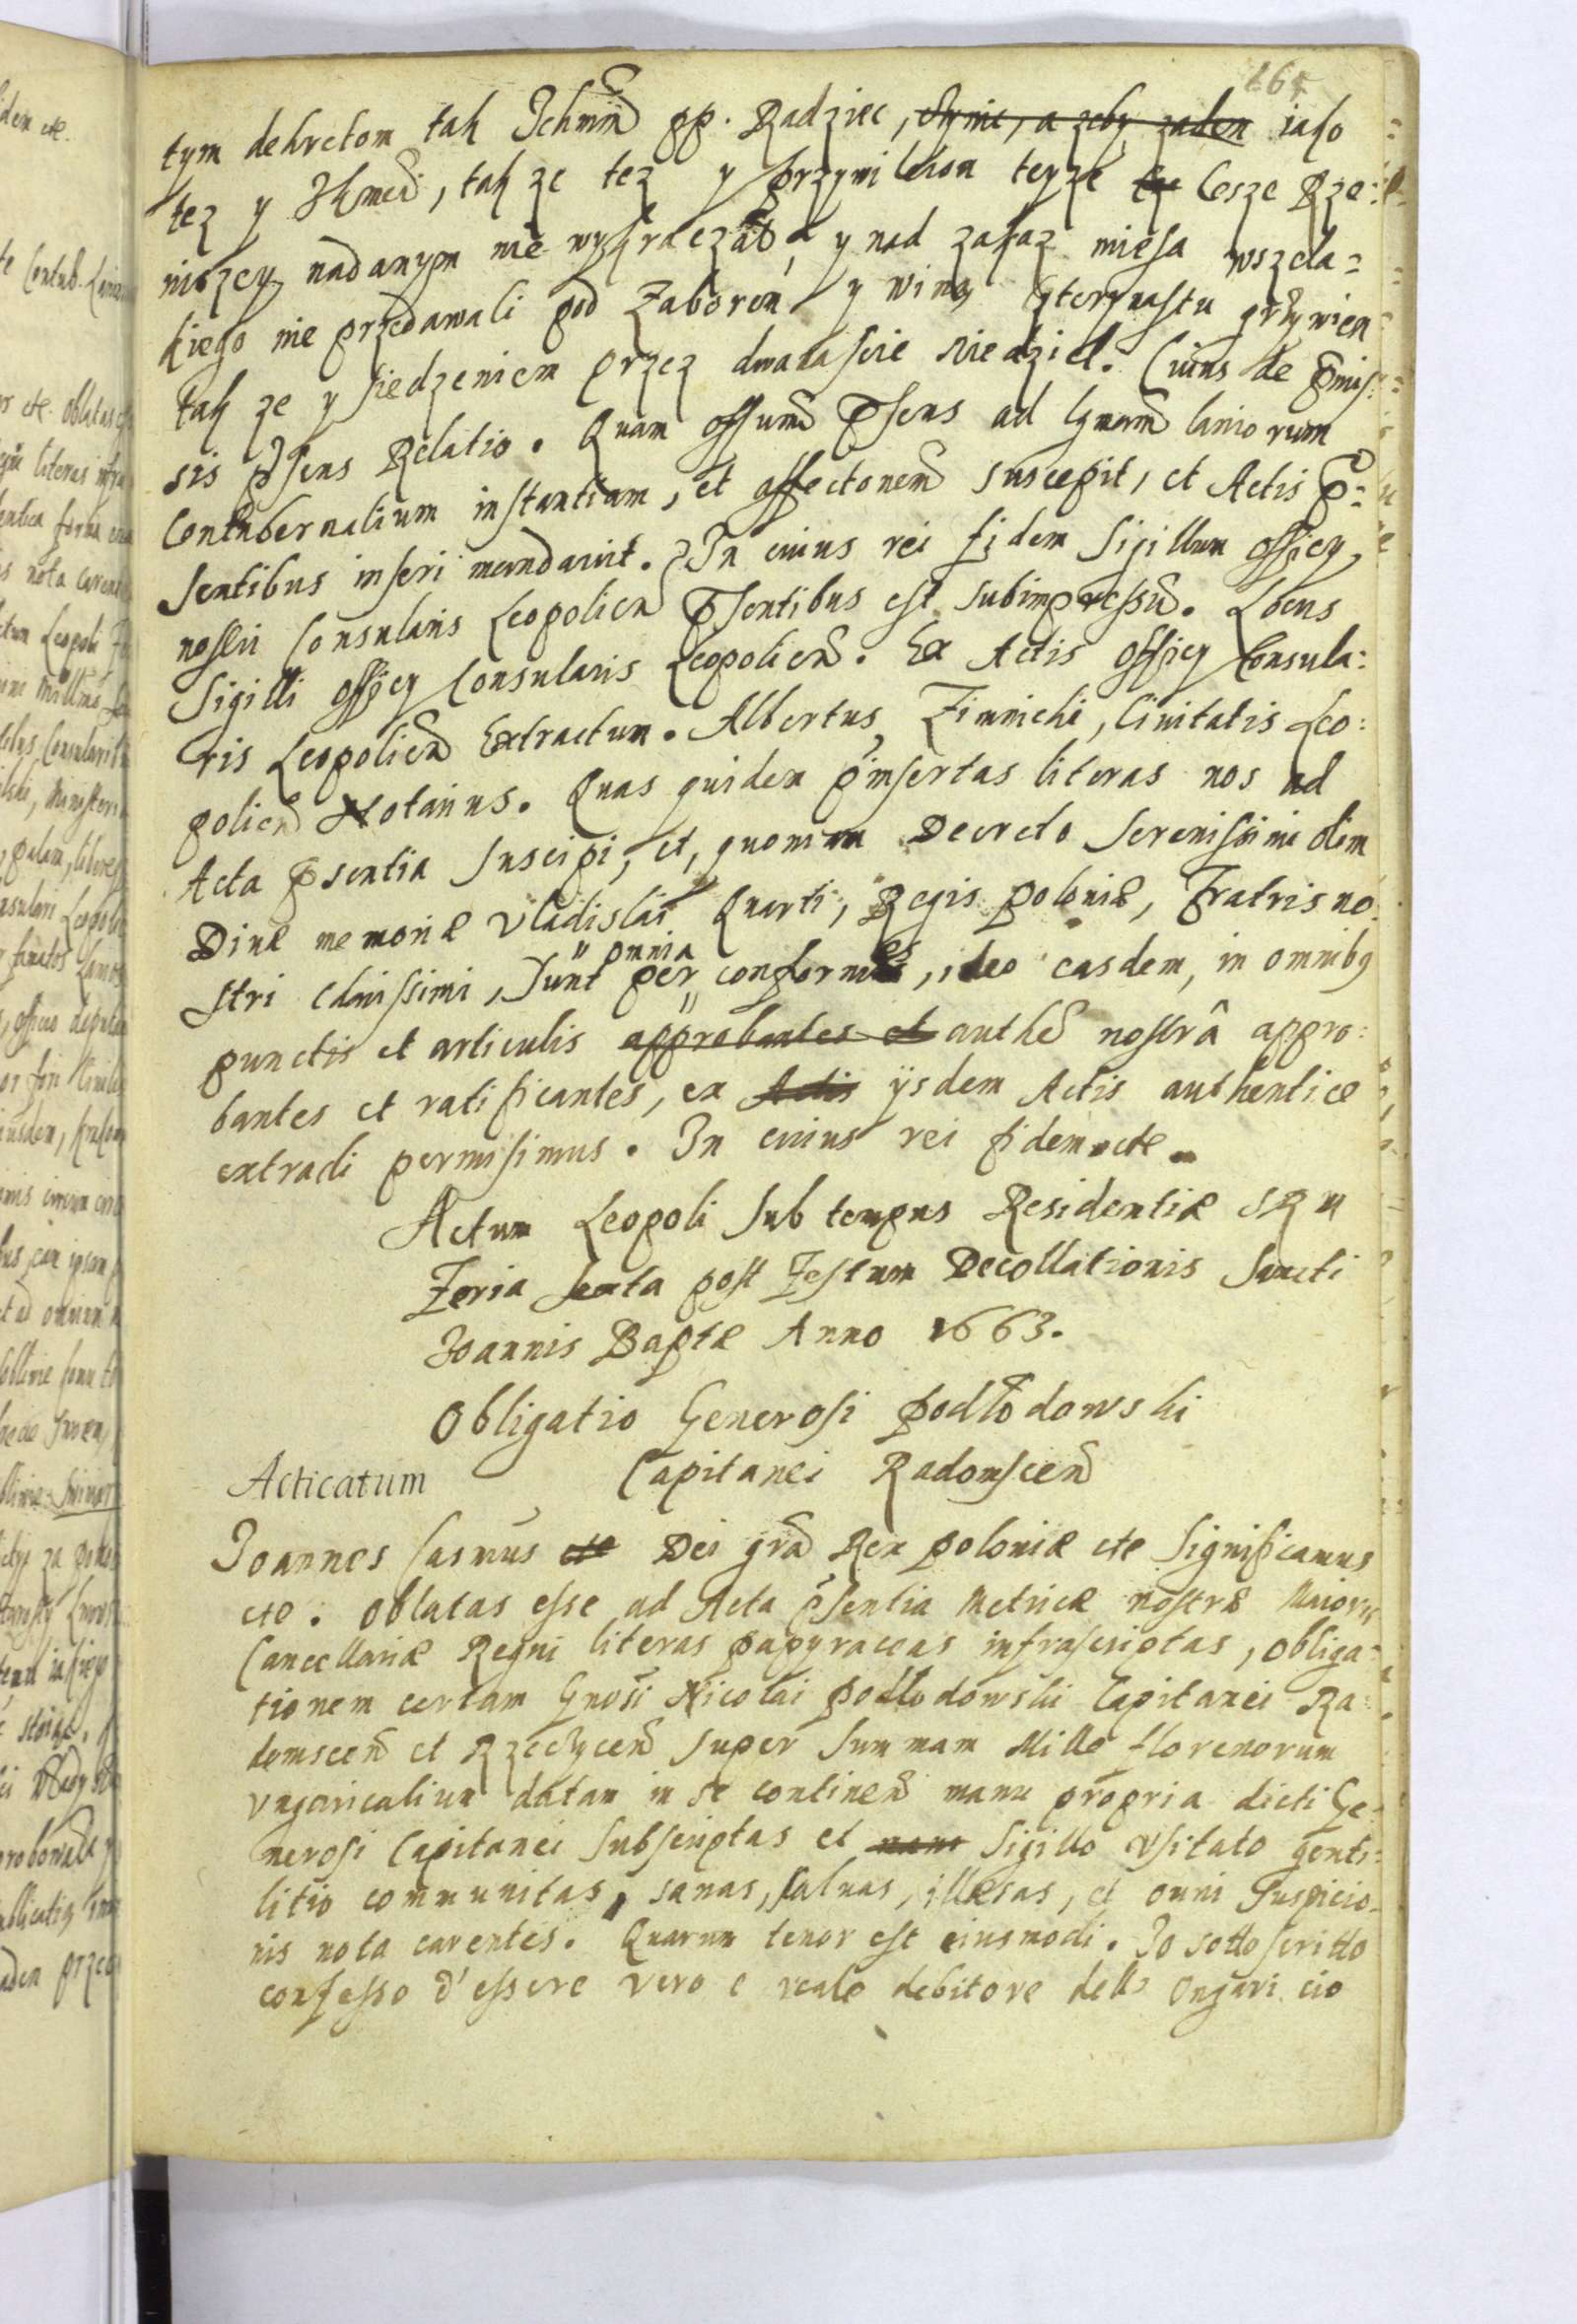 165
tym dekretom tak Ichmm pp. Radziec, czynic, a zeby zaden iako
tez y Ikmci, tak ze tez y przywileiom teyze Cesze Rze:
niczey nadanym nie wykraczac, y nad zakaz miesa wszela:
kiego nie przedawali pod zaborem y wina czternastu grzywien
tak ze y siedzeniem przez dwanascie niedziel. Cuius de pmis:
sis psens Relatio. Quam offium psens ad lanio rum
Contubernalium instantiam, et affectonem suscepit, et Actis p:
sentibus inseri mandavit. In cuius rei fidem Sigillum officy
nostri Consularis Leopolien psentibus est subimpressu. Locus
Sigilli officy Consularis Leopolien. Ex Actis officy Consula:
ris Leopolien Extractum. Albertus Zimnicki, Civitatis Leo:
polien Notarius. Quas quidem pinsertas literas nos ad
Acta psentia suscipi, et, quoniam Decreto Serenissimi olim
Divæ memoriæ Vladislai Quarti, Regis poloniæ, Fratris no
stri Clmissimi, Sunt per omnia conformes, ideo easdem, in omnibg
punctis et articulis approbantes et authe nostrâ appro:
bantes et ratificantes, ex Actis ijsdem Actis authentice
extradi permisimus. In cuius rei fidem ete.
Actum Leopoli Sub tempus Residentiæ SRM
Feria Sexta post Festum Decollationis Sancti
Joannis Baptæ Anno 1663.
Obligatio Generosi podlodowski
Capitanei Radomscen
Acticatum
Joannes Casimus ete Dei gra Rex poloniæ ete Significamus
ete. Oblatas esse ad Acta psentia Metricæ nostræ Maioris
Cancellariæ Regni literas papyraceas infrascriptas, obliga:
tionem certam Gnosi Nicolai podlodowski Capitanei Ra:
domscen et Rzeczycen super Summam Mille florenorum
vngaricalium datam in se continen manu propria dicti Ge:
nerosi Capitanei Subscriptas et manu Sigillo vsitato genti:
litio communitas, sanas, salvas, illæsas, et omni Suspicio:
nis nota carentes. Quarum tenor est eiusmodi. Io sottoscritto
confesso d'essere vero e reale debitore dell Ongari cio